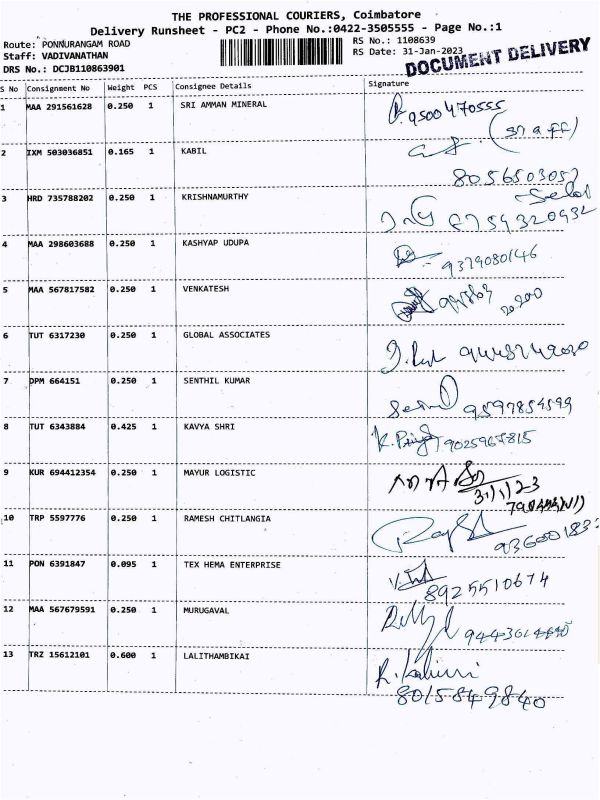 THE PROFESSIONAL COURIERS, Coimbatore
Delivery Runsheet - PC2 - Phone No.:0422-3505555 - Page No.:1
Route: PONNURANGAM ROAD
RS No.: 1108639
Staff: VADIVANATHAN
RS Date: 31-Jan-2023
DRS No.: DCJB110863901
DOCUMENT DELIVERY
S No Consignment No Weight PCS Consignee Details Signature
1 MAA 291561628 0.250 1 SRI AMMAN MINERAL 9500470555
(Staff)
2 IXM 503036851 0.165 1 KABIL
8056503057
3 HRD 735788202 0.250 1 KRISHNAMURTHY
8759320932
4 MAA 298603688 0.250 1 KASHYAP UDUPA
9379080146
5 MAA 567817582 0.250 1 VENKATESH
6 TUT 6317230 0.250 1 GLOBAL ASSOCIATES
7 DPM 664151 0.250 1 SENTHIL KUMAR
9597854599
8 TUT 6343884 0.425 1 KAVYA SHRI
K. Priya 9025965815
9 KUR 694412354 0.250 1 MAYUR LOGISTIC
31/1/23
10 TRP 5597776 0.250 1 RAMESH CHITLANGIA
11 PON 6391847 0.095 1 TEX HEMA ENTERPRISE
8925510674
12 MAA 567679591 0.250 1 MURUGAVAL
13 TRZ 15612101 0.600 1 LALITHAMBIKAI
8015849840